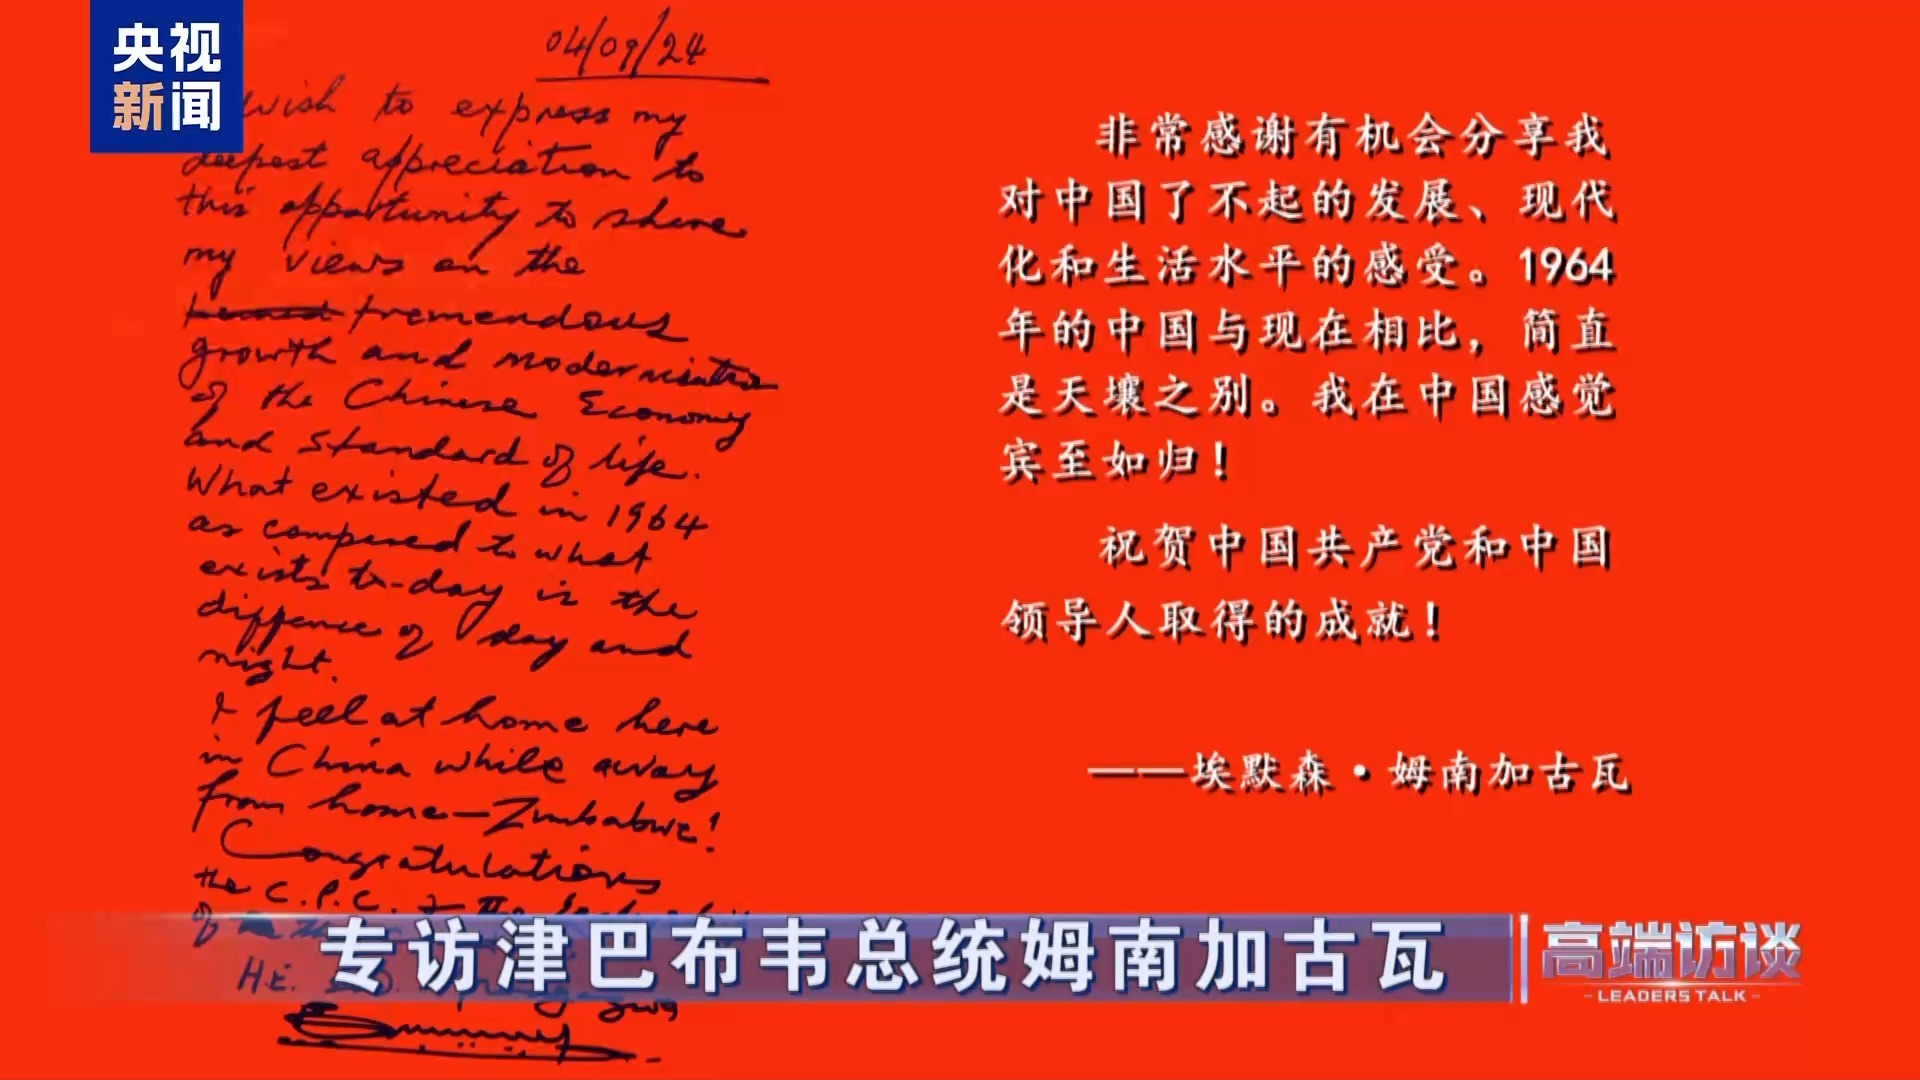 央视
新闻
04/09/24
wish to express my
deepest appreciation to
this opportunity to share
my views on the
tremendous
growth and modernisation
of the Chinese Economy
and standard of life.
What existed in 1964
as compared to what
exists to-day is the
diffence of day and
night.
I feel at home here
in China while away
from home—Zimbabwe!
Congratulations
the C.P.C. & the
of
H.E.
非常感谢有机会分享我
对中国了不起的发展、现代
化和生活水平的感受。1964
年的中国与现在相比，简直
是天壤之别。我在中国感觉
宾至如归！
祝贺中国共产党和中国
领导人取得的成就！
——埃默森·姆南加古瓦
专访津巴布韦总统姆南加古瓦
高端访谈
-LEADERS TALK-